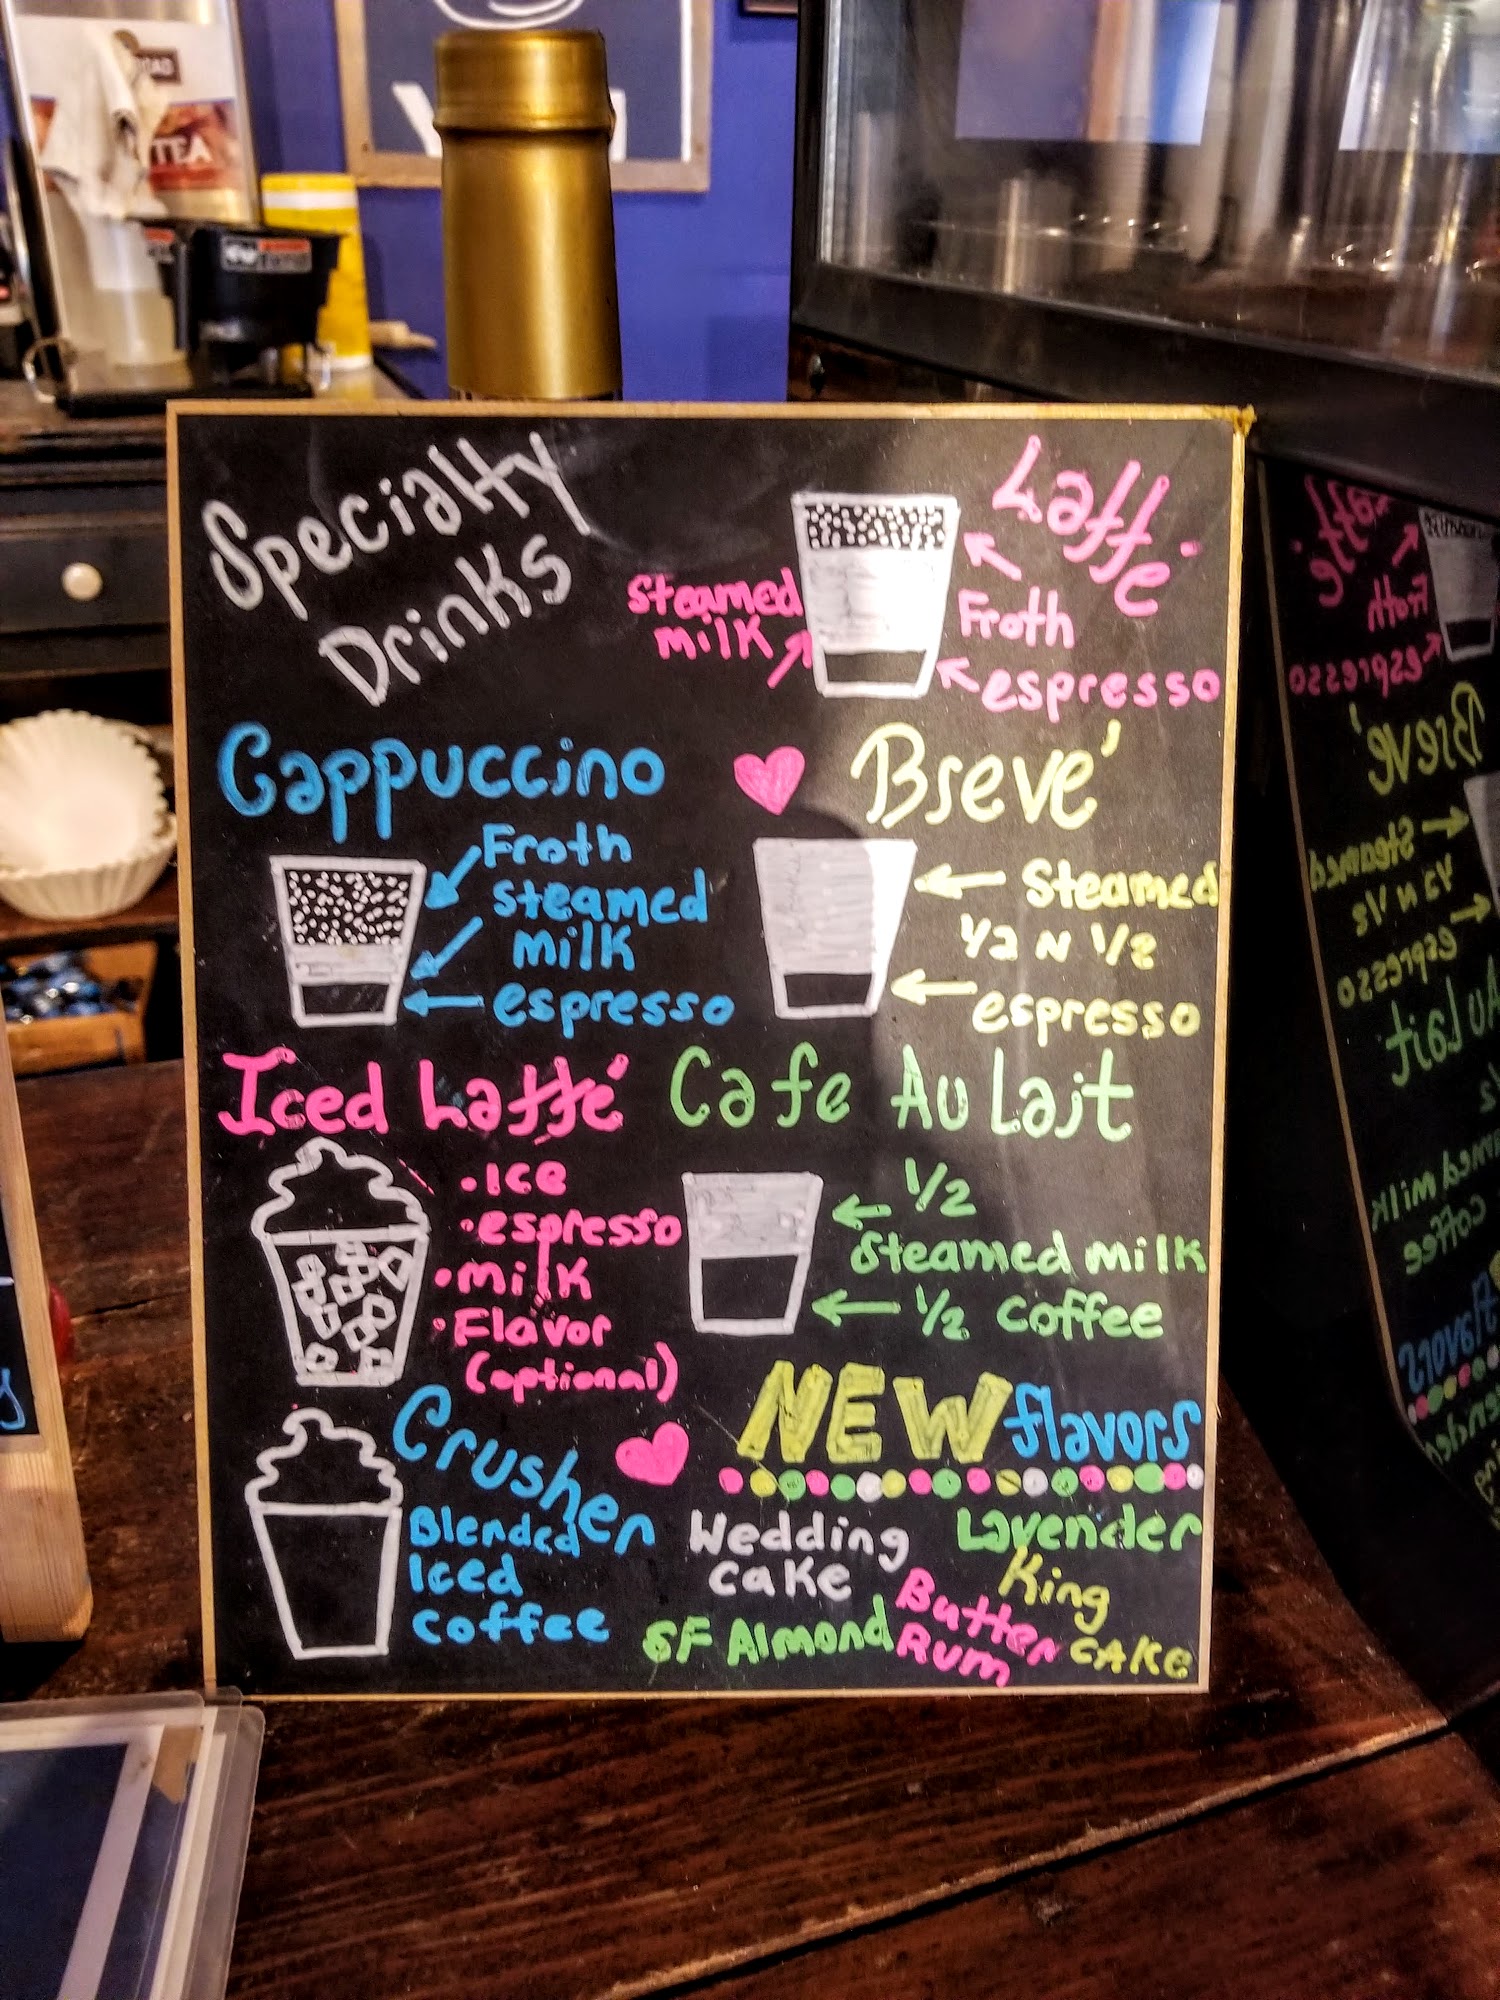 TEA
Specialty
Drinks
Latte'
Steamed
milk
Froth
espresso
Cappuccino
Froth
steamed
milk
espresso
Breve'
Steamed
1/2 N 1/2
espresso
Iced Latte'
• Ice
• espresso
• milk
• Flavor
(optional)
Cafe Au Lait
1/2
Steamed milk
1/2 coffee
Crusher
Blended
Iced
coffee
NEW flavors
Wedding
Cake
Lavender
King
CAKE
Butter
Rum
SF Almond